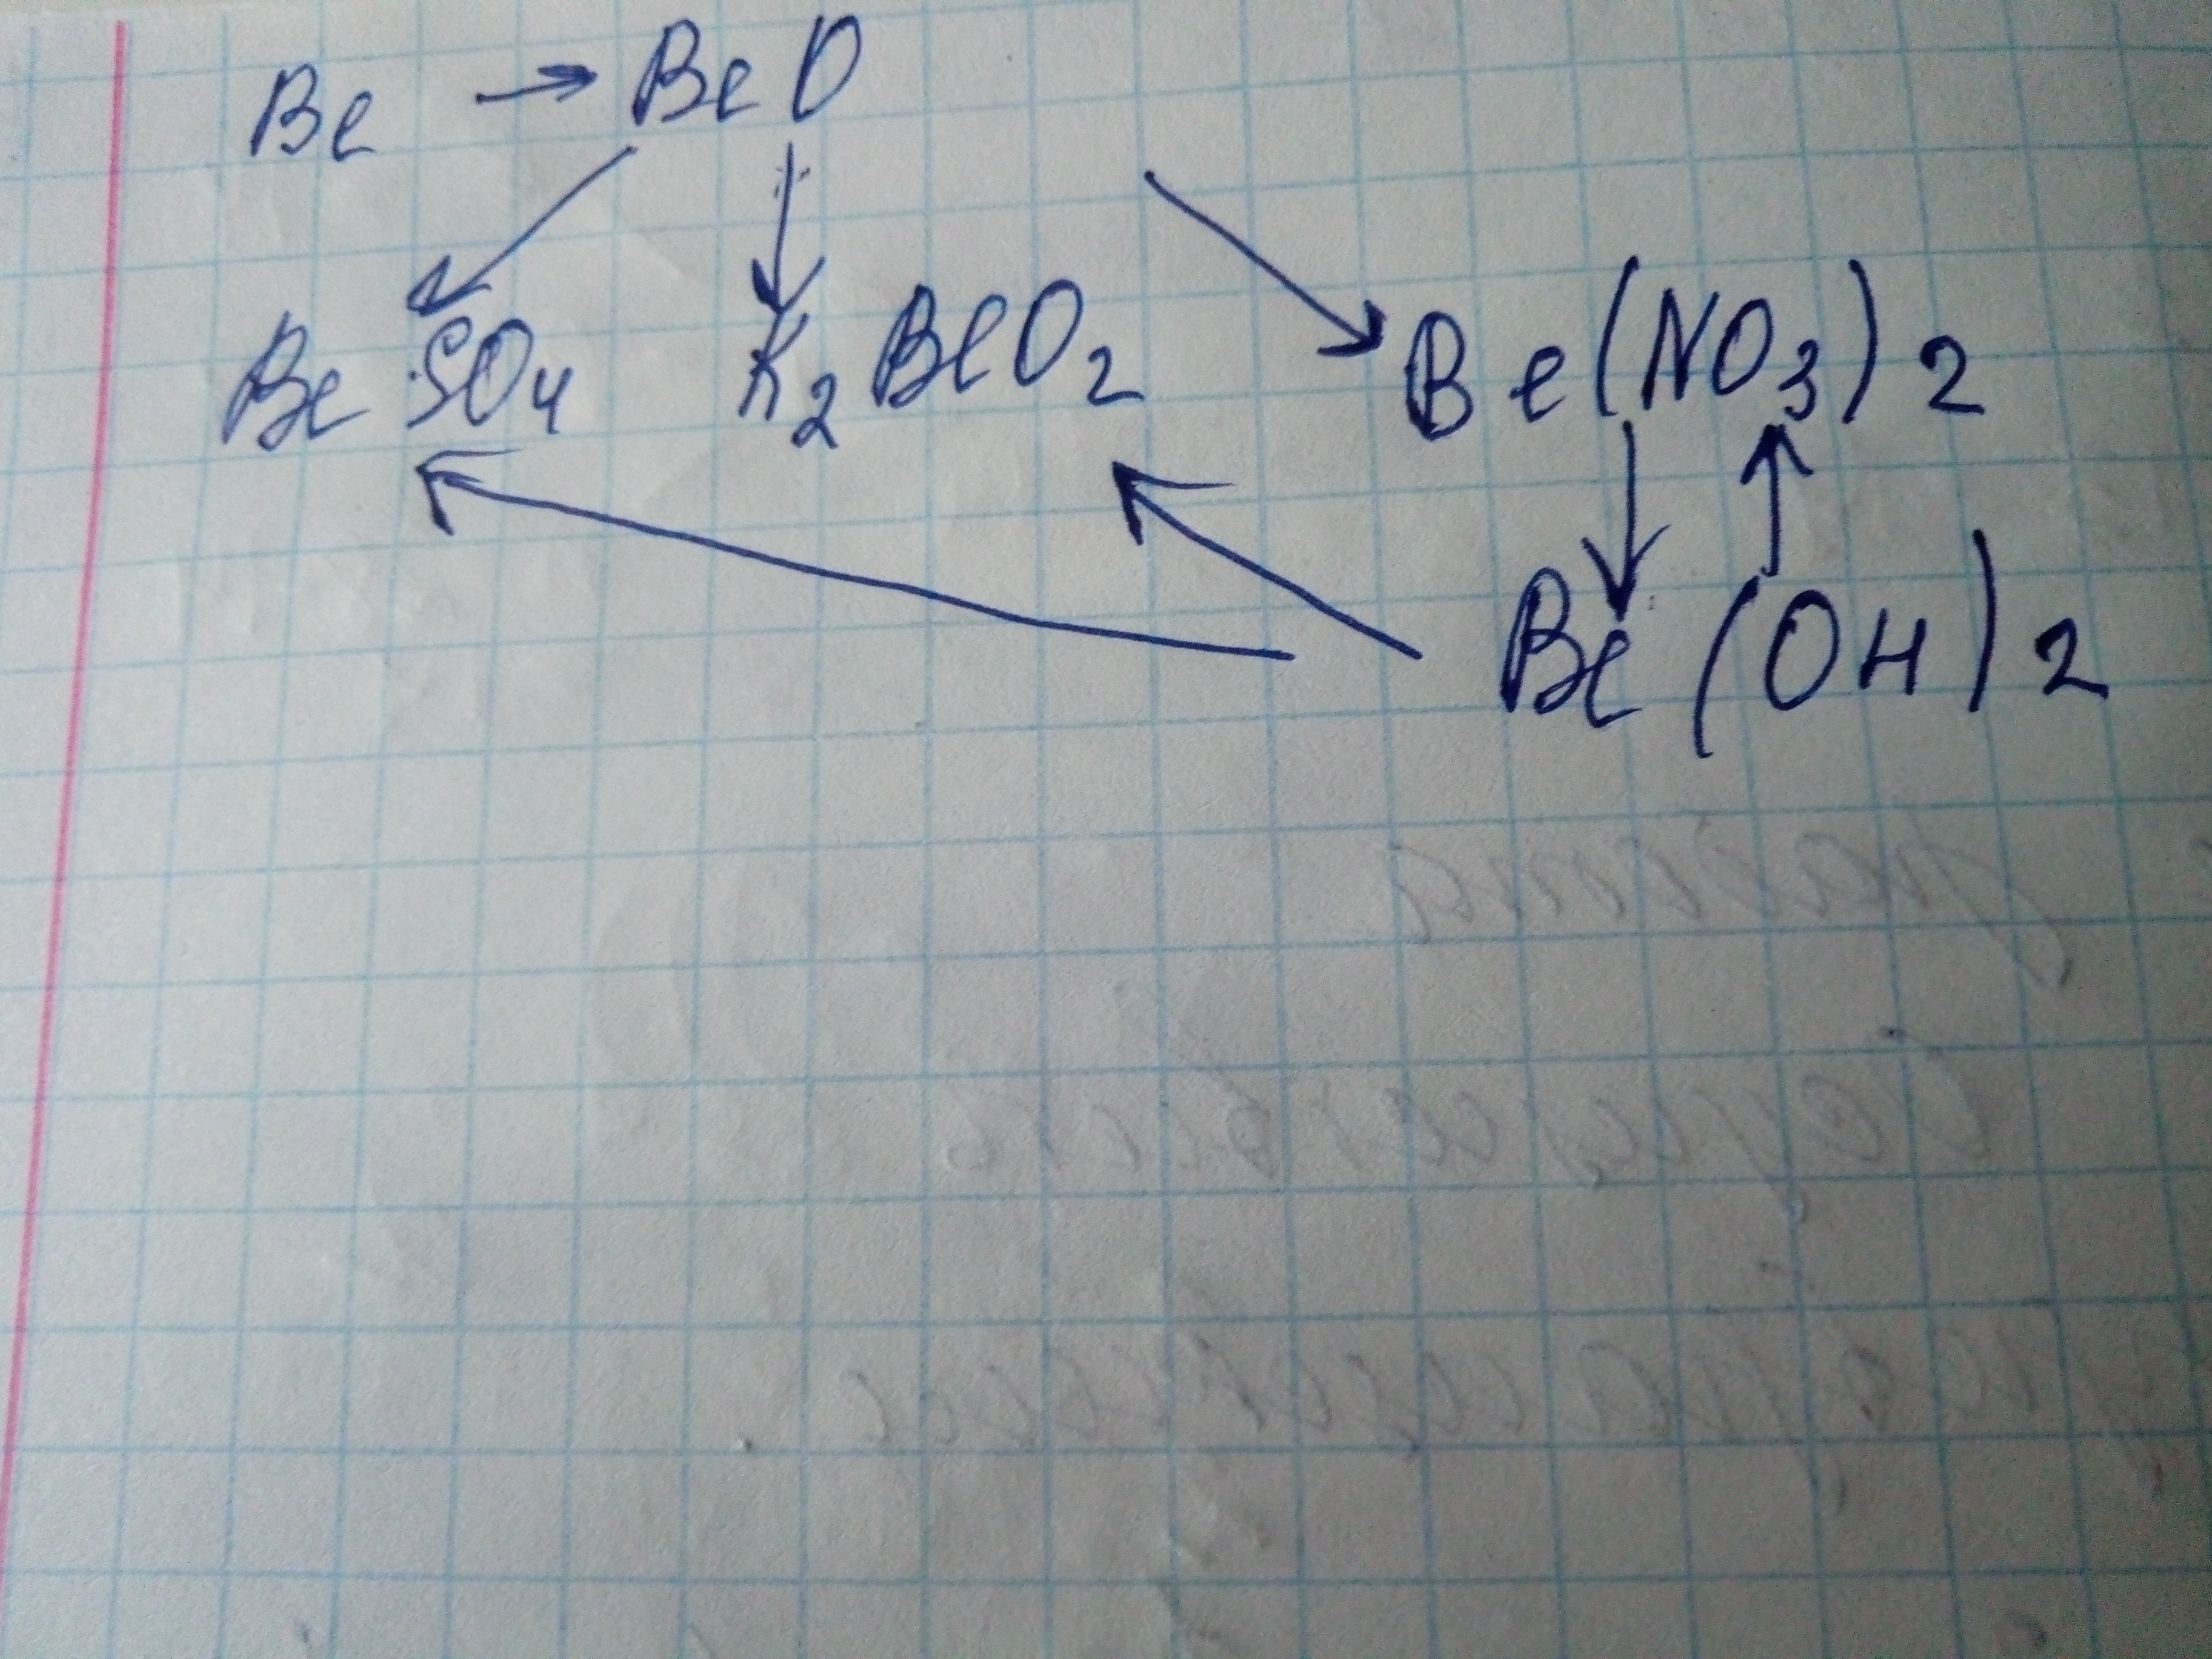 Be → BeO
BeSO₄ K₂BeO₂ Be(NO₃)₂
Be(OH)₂